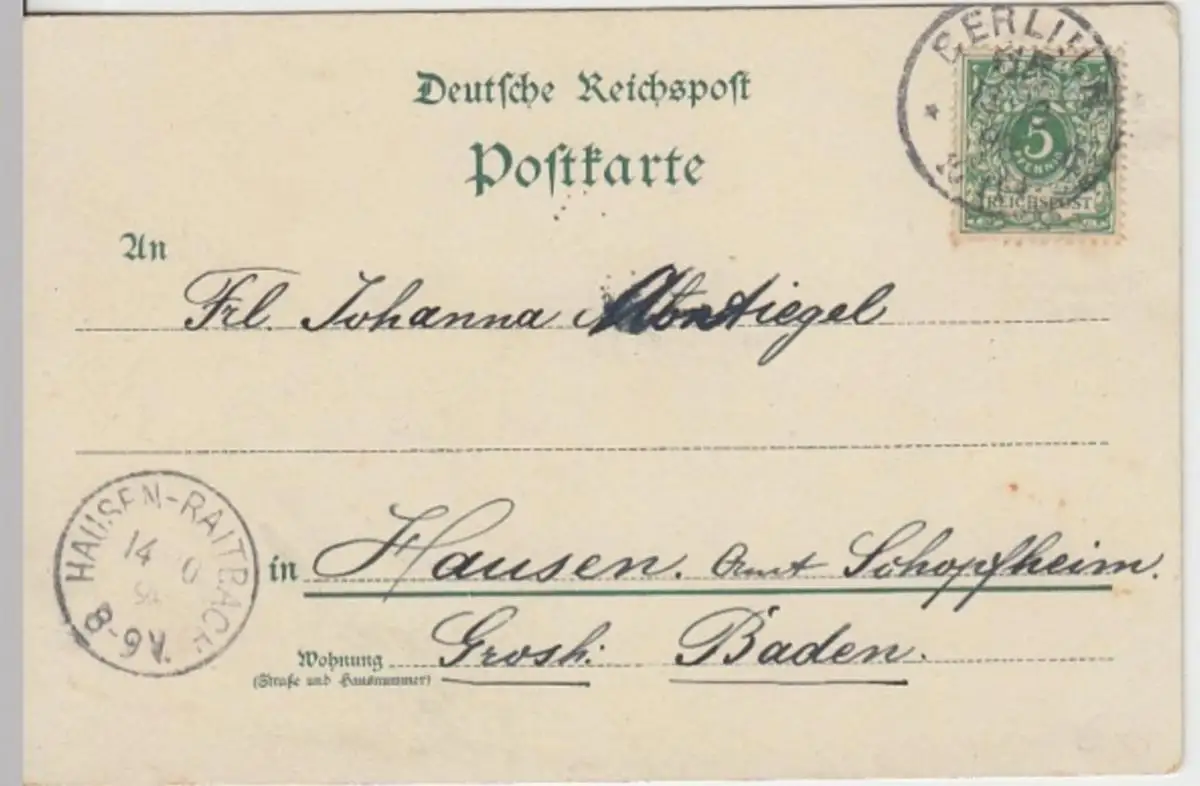 Deutsche Reichspost
Postkarte
BERLIN
5
PFENNIG
REICHSPOST
An
Frl. Johanna
HAUSEN-RAITBACH
14
6-8 N.
in Hausen. Amt Schopfheim.
Wohnung Grosh: Baden.
(Straße und Hausnummer)